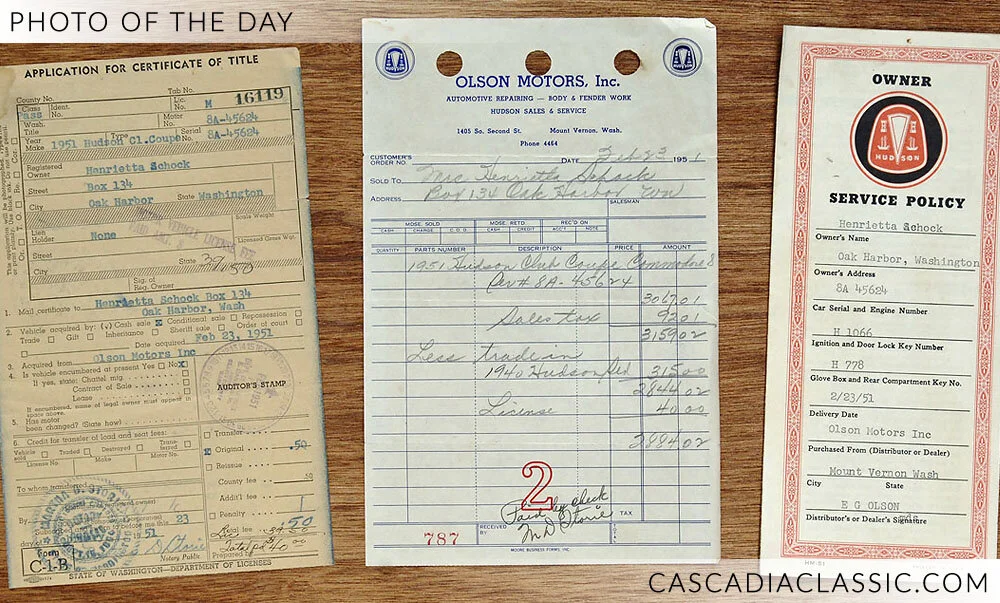 PHOTO OF THE DAY
APPLICATION FOR CERTIFICATE OF TITLE
County No.
Tab No.
Class Pass
Ident. No.
Lic. No. M 16119
Wash. Title
Motor No. 8A-45624
Year Make 1951 Hudson Type Cl.Coupe Serial No. 8A-45624
Registered Owner Henrietta Schock
Street Box 134
City Oak Harbor State Washington
Scale Weight
Lien Holder None
Licensed Gross Wgt.
Street
City State
Sig. of Reg. Owner
1. Mail certificate to Henrietta Schock Box 134
Oak Harbor, Wash
2. Vehicle acquired by: Cash sale Conditional sale Repossession
Trade Gift Inheritance Sheriff sale Order of court
Date acquired Feb 23, 1951
3. Acquired from Olson Motors Inc
4. Is vehicle encumbered at present Yes No x
If yes, state: Chattel mtg
Contract of Sale
Lease
If encumbered, name of legal owner must appear in space above.
5. Has motor been changed? (State how)
6. Credit for transfer of load and seat fees:
Vehicle sold Traded Destroyed Transferred
License No. Make Motor No.
AUDITOR'S STAMP
Transfer
Original .50
Reissue
County fee .50
Addit'l fee
Penalty
To whom transferred
23
1951
Notary Public
Prepared by
Form C-1-B
STATE OF WASHINGTON—DEPARTMENT OF LICENSES
HUDSON
HUDSON
OLSON MOTORS, Inc.
AUTOMOTIVE REPAIRING — BODY & FENDER WORK
HUDSON SALES & SERVICE
1405 So. Second St. Mount Vernon, Wash.
Phone 4464
CUSTOMER'S ORDER NO. DATE Feb 23 1951
SOLD TO Mrs Henrietta Schock
ADDRESS Box 134 Oak Harbor Wn
SALESMAN
MDSE. SOLD MDSE. RETD REC'D ON
CASH CHARGE C.O.D. CASH CREDIT ACC'T NOTE
QUANTITY PARTS NUMBER DESCRIPTION PRICE AMOUNT
1951 Hudson Club Coupe Commodore 8
Car # 8A-45624
3067 01
Sales tax 92 01
3159 02
Less trade in
1940 Hudson Sed 315 00
2844 02
License 40 00
2884 02
2
Paid by check
TAX
787
RECEIVED BY
MOORE BUSINESS FORMS, INC.
OWNER
HUDSON
SERVICE POLICY
Henrietta Schock
Owner's Name
Oak Harbor, Washington
Owner's Address
8A 45624
Car Serial and Engine Number
H 1066
Ignition and Door Lock Key Number
H 778
Glove Box and Rear Compartment Key No.
2/23/51
Delivery Date
Olson Motors Inc
Purchased From (Distributor or Dealer)
Mount Vernon Wash
City State
E G OLSON
Distributor's or Dealer's Signature
CASCADIACLASSIC.COM